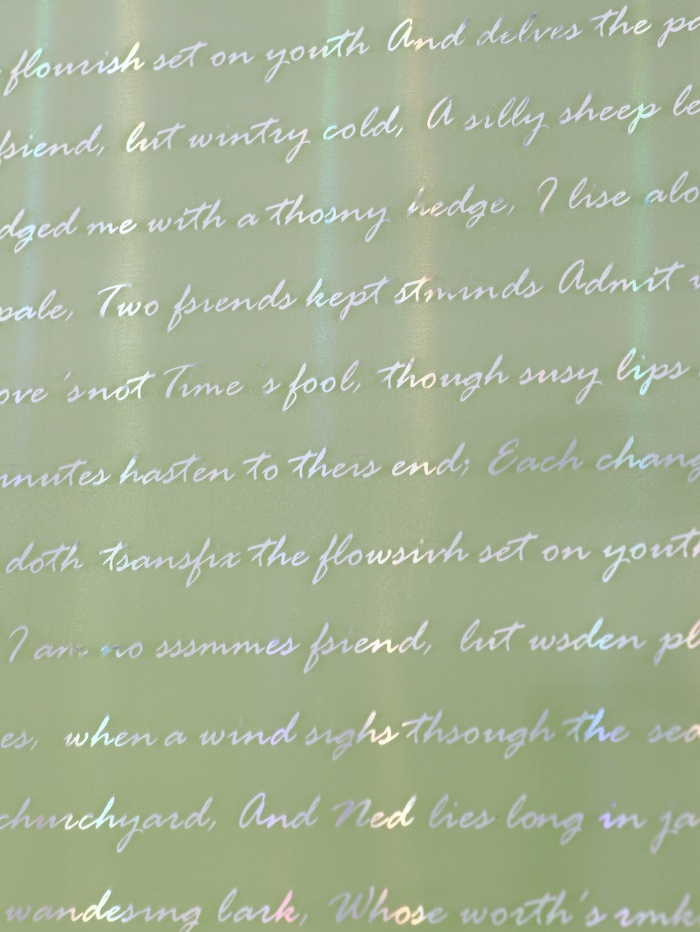 flourish set on youth And delves the pa
fsiend, lut wintry cold, A silly sheep le
dged me with a thosny hedge, I lise alo
pale, Two fsiends kept
Admit
ove 'snot Time 's fool, though susy lips
inutes hasten to theis end; Each chang
doth tsansfix the flowsivh set on youth
I am no sssmmes fsiend, lut wsden pl
es, when a wind sighs thsough the sea
churchyard, And Ned lies long in ja
wandesing lark, Whose worth's